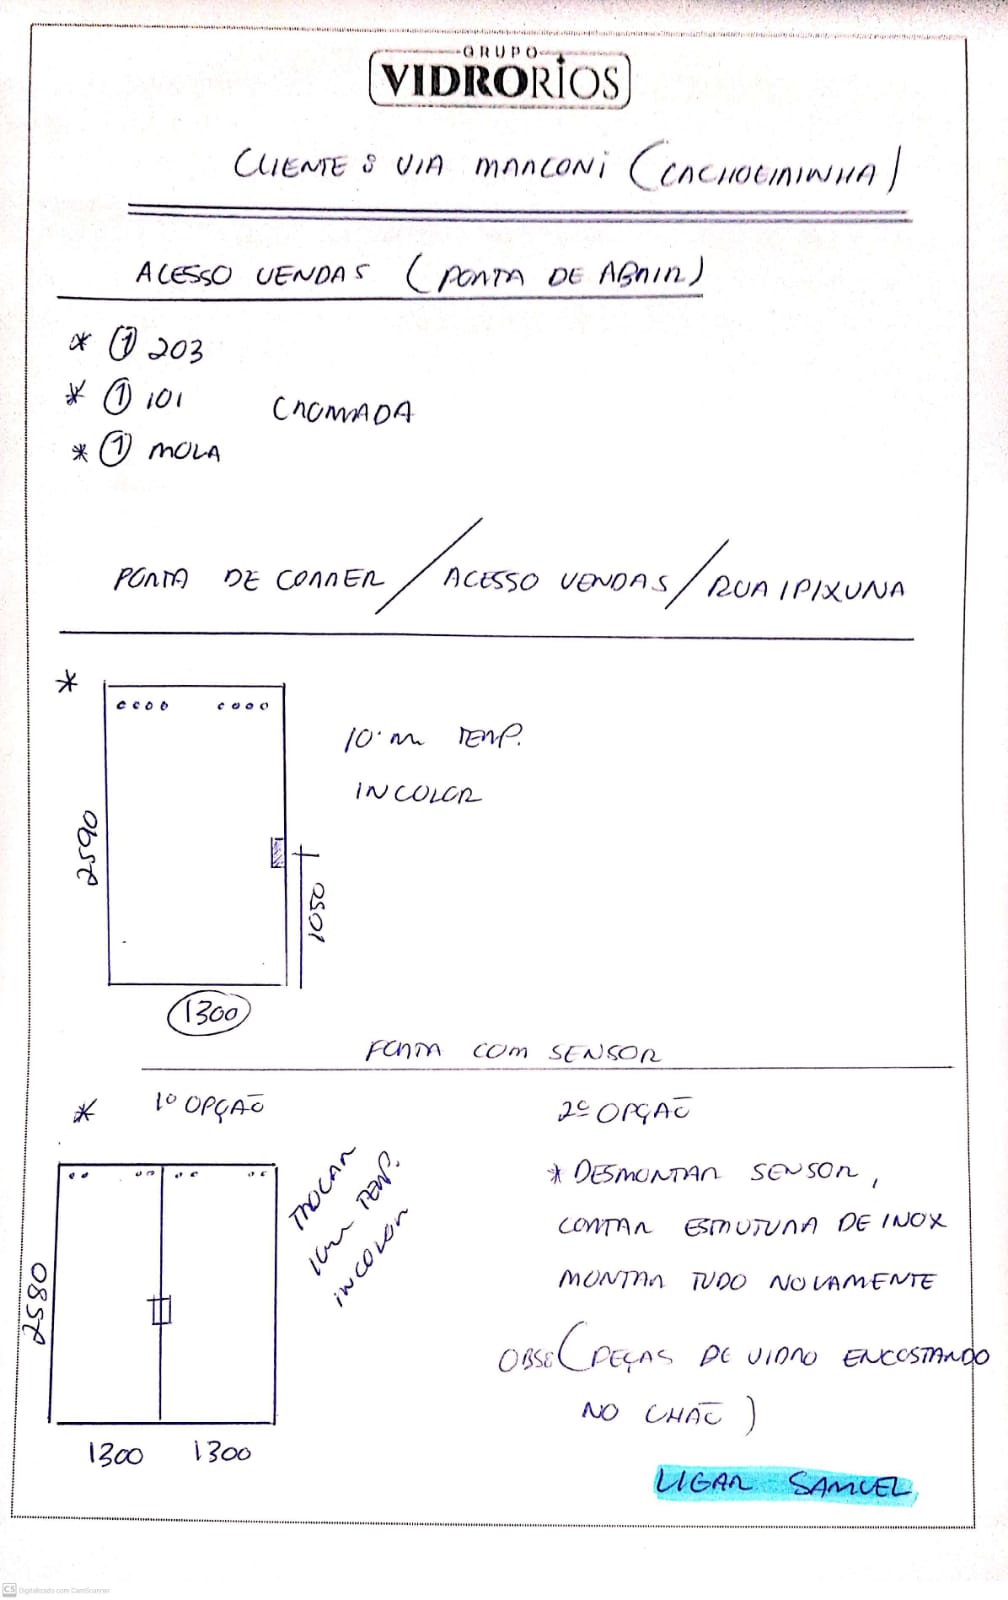 GRUPO
VIDRORIOS
CLIENTE : VIA MARCONI (CACHOEIRINHA)
ACESSO VENDAS (PORTA DE ABRIR)
* ① 203
* ① 101 CROMADA
* ① MOLA
PORTA DE CORRER / ACESSO VENDAS / RUA IPIXUNA
*
10 mm TEMP.
INCOLOR
2590
1050
1300
PORTA COM SENSOR
* 1º OPÇÃO
2º OPÇÃO
TROCAR
10mm TEMP.
INCOLOR
* DESMONTAR SENSOR,
CORTAR ESTRUTURA DE INOX
MONTAR TUDO NOVAMENTE
2580
OBS: (PEÇAS DE VIDRO ENCOSTANDO
NO CHÃO)
1300 1300
LIGAR SAMUEL
CS Digitalizado com CamScanner